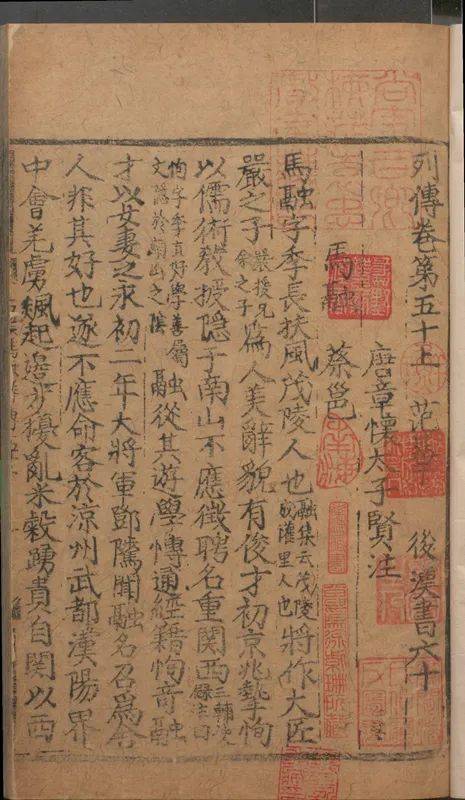 列傳卷第五十上 范曄 後漢書六十
唐章懷太子賢注
馬融 蔡邕
馬融字季長扶風茂陵人也融集云茂陵成懽里人也將作大匠
嚴之子嚴援兄余之子爲人美辭貌有俊才初京兆摯恂
以儒術教授隱于南山不應徵聘名重關西三輔決録注曰
恂字季直好學善屬文隱於南山之陰融從其遊學博通經籍恂奇融
才以女妻之永初二年大將軍鄧騭聞融名召爲舍
人非其好也遂不應命客於涼州武都漢陽界
中會羌虜飆起邊方擾亂米穀踊貴自關以西